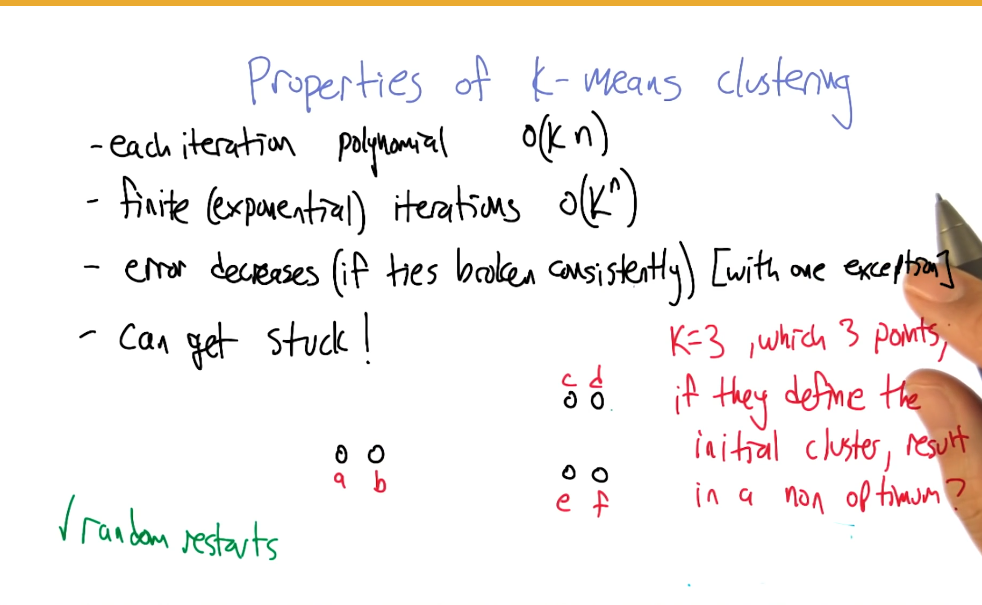 Properties of k-means clustering
- each iteration polynomial O(kn)
- finite (exponential) iterations O(k^n)
- error decreases (if ties broken consistently) [with one exception]
- can get stuck!
K=3, which 3 points,
c d
if they define the
initial cluster, result
a b
e f
in a non optimum?
✓random restarts